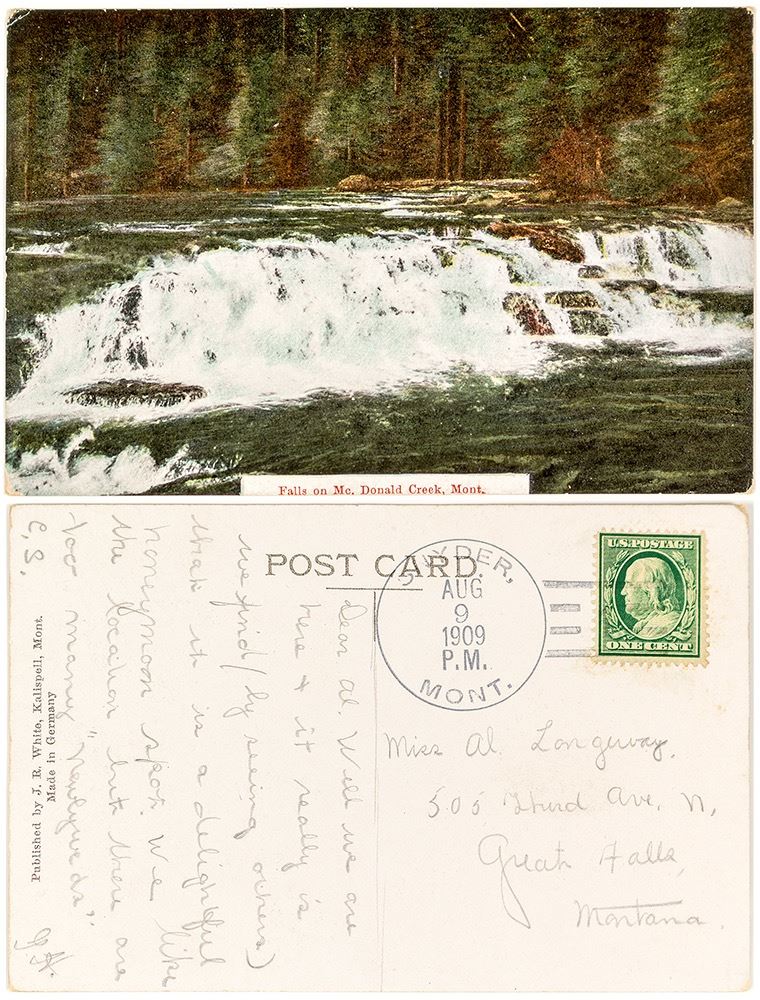 Falls on Mc. Donald Creek, Mont.
POST CARD.
SNYDER,
AUG
9
1909
P.M.
MONT.
U.S. POSTAGE
ONE CENT
Miss Al. Longeway.
505 Third Ave. N,
Great Falls,
Montana.
Dear Al. Well we are
here & it really is
we find (by seeing others)
that it is a delightful
honeymoon spot. We like
the location but there are
too many "newlyweds".
C.S.
G.H.
Published by J. R. White, Kalispell, Mont.
Made in Germany